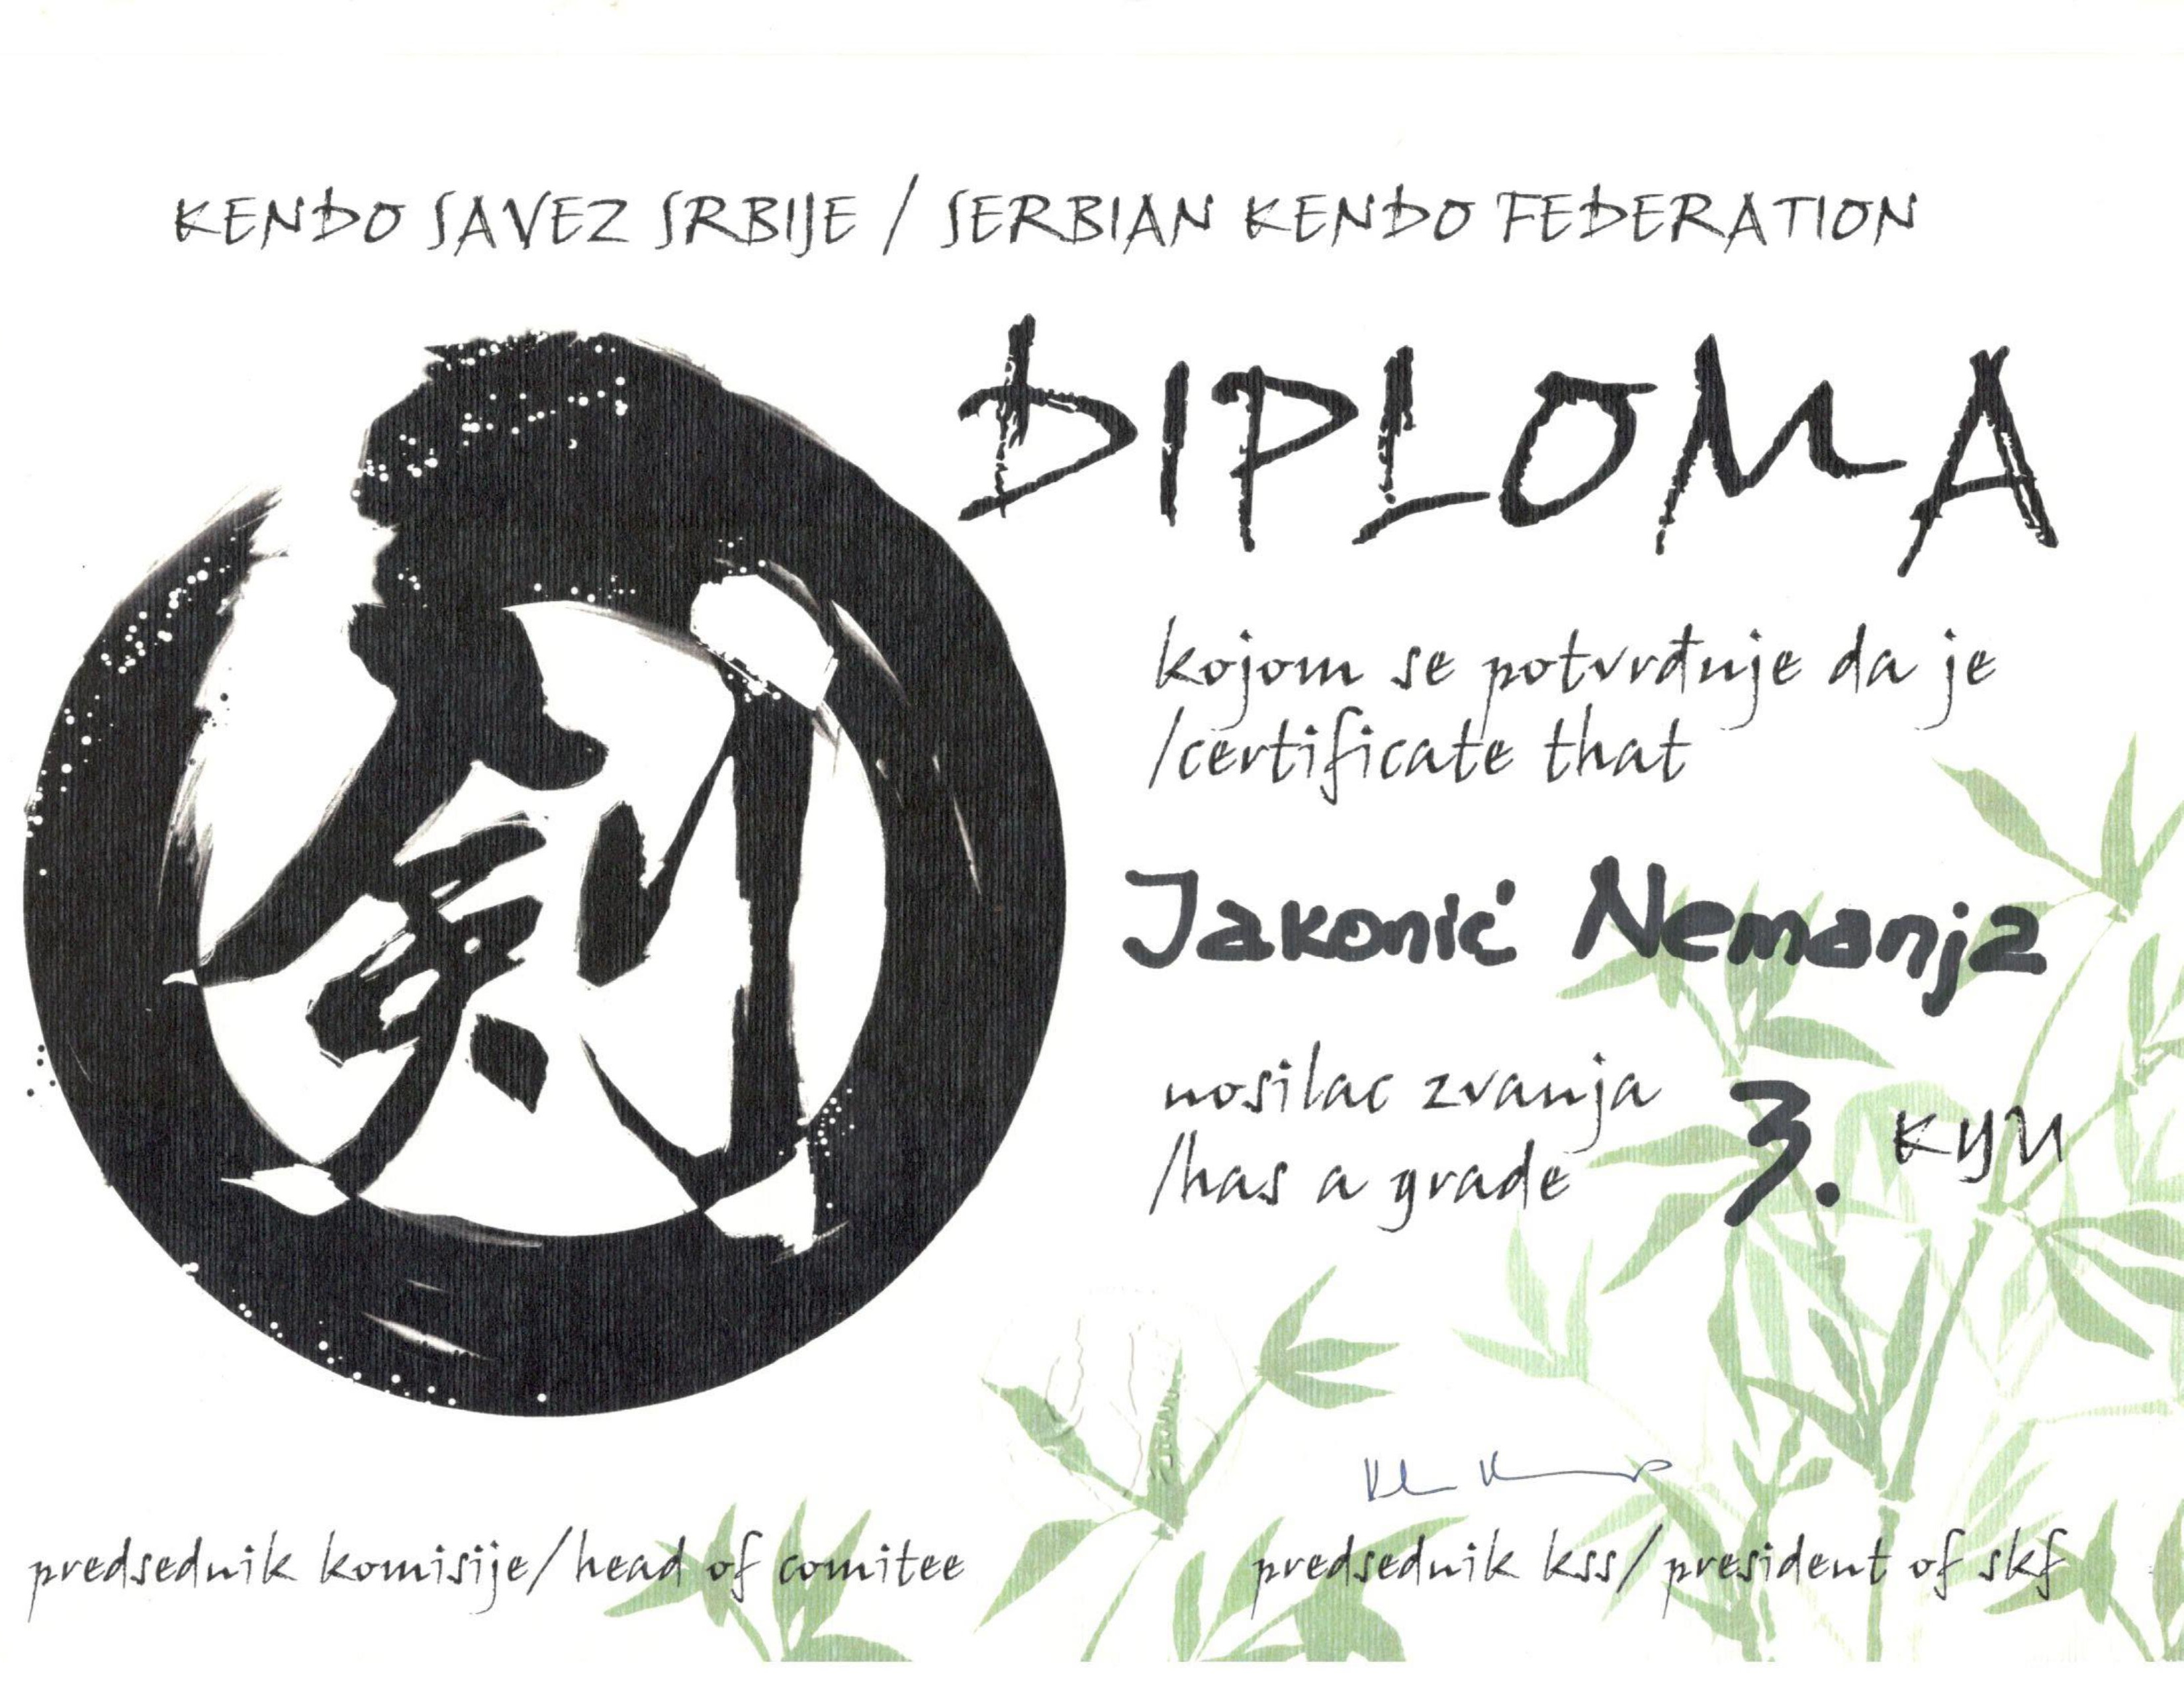 KENDO SAVEZ SRBIJE / SERBIAN KENDO FEDERATION
DIPLOMA
剣
kojom se potvrđuje da je
/certificate that
Jakonić Nemanja
nosilac zvanja
/has a grade
3. KYU
predsednik komisije/head of comitee
predsednik kss/president of skf